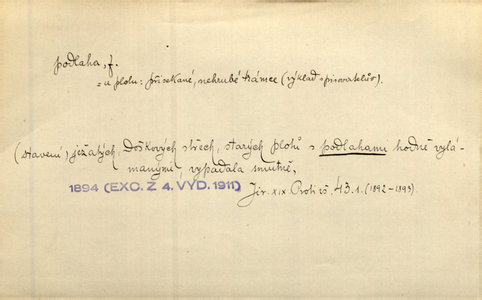 podlaha, f.
= u plotu: přisekané, nehrubé trámce (výklad spisovatelův).
(Stavení) ježatých, doškových střech, starých plotů s podlahami hodně vylá-
manými, vypadala smutně.
1894 (EXC. Z 4. VYD. 1911)
Jir. XIX Proti vš. 43.1. (1892–1893).